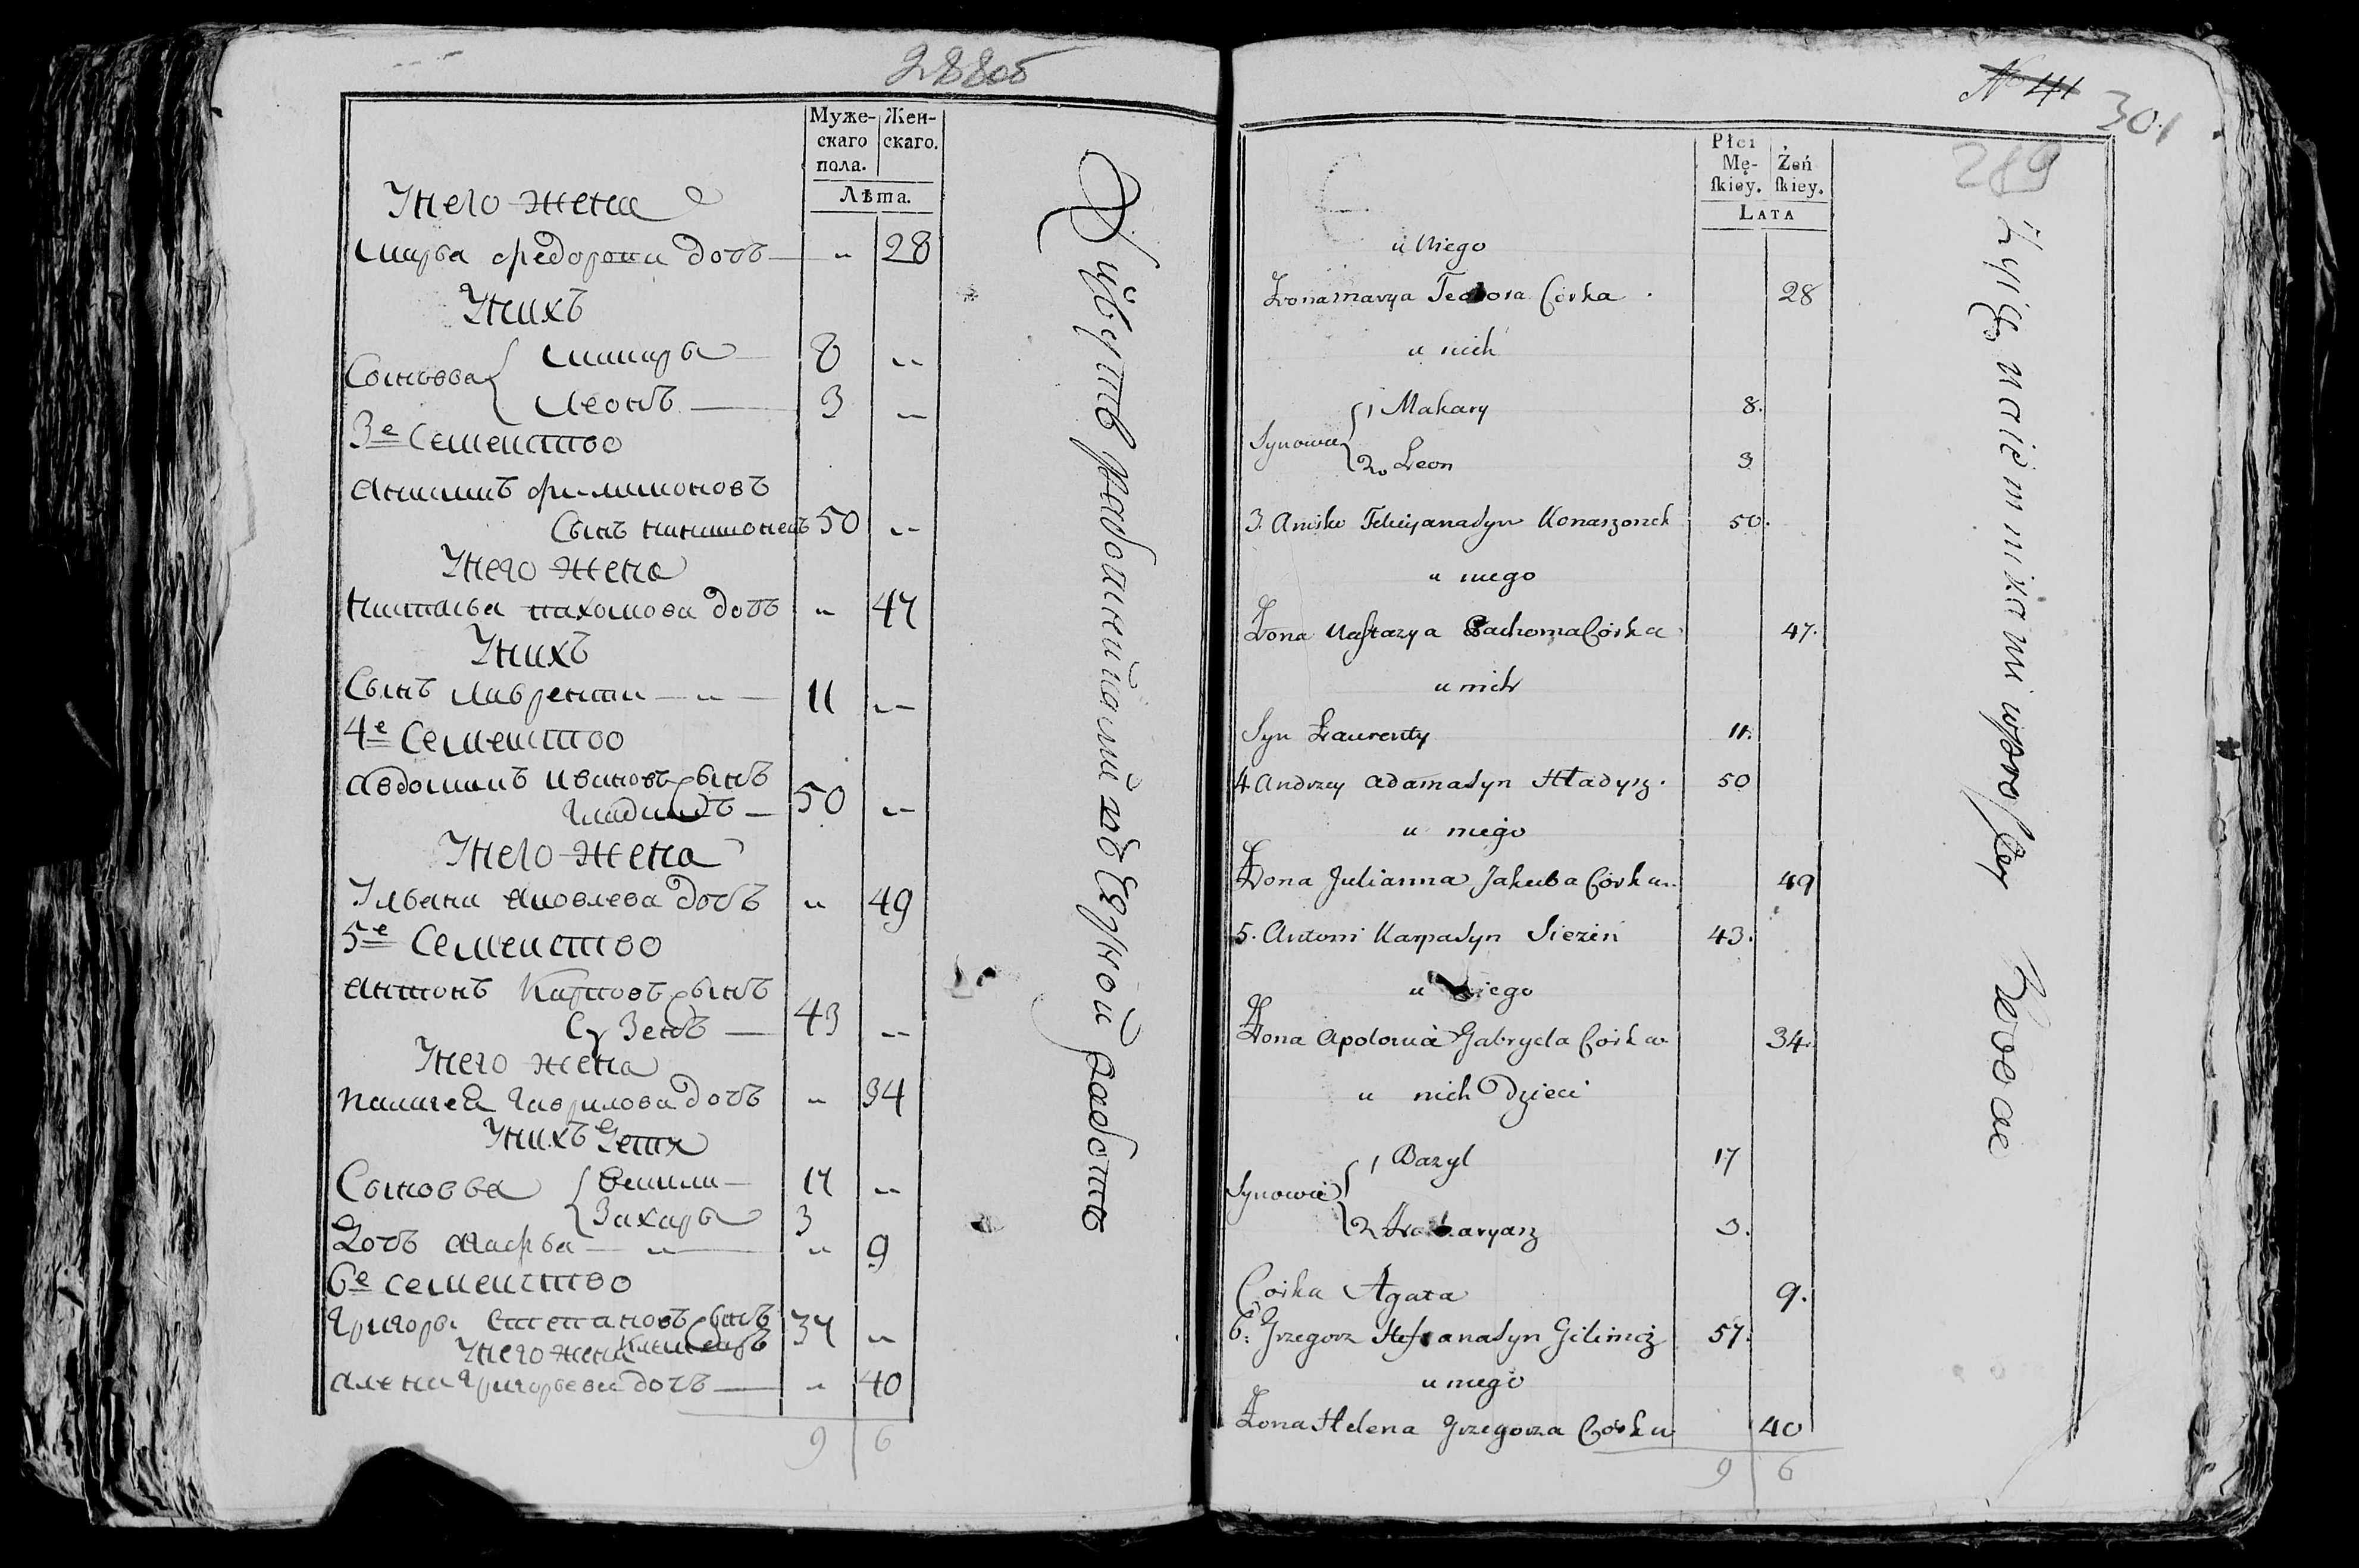 288об
Муже-
скаго
пола.
Жен-
скаго.
Лѣта.
У него жена
Марья Федорова дочь — „ 28
У нихъ
Сыновья
Макаръ — 8 „
Леонъ — 3 „
3е Семейство
Анисимъ Филимоновъ
Сынъ 50 „
У него жена
Настасья Пахомова дочь „ 47
У нихъ
Сынъ Лаврентий — „ — 11 „
4е Семейство
Авдокимъ Ивановъ сынъ
Гладышъ — 50 „
У него жена
Ульяна Яковлева дочь „ 49
5е Семейство
Антонъ Карповъ сынъ
Сузень — 43 „
У него жена
Палагея Гаврилова дочь „ 34
У нихъ дети
Сыновья
Василий — 17 „
Захаръ 3
Дочь Агафья — „ — „ 9
6е Семейство
Григорий Степановъ сынъ 37 „
У него жена
Алена Григорьева дочь — „ 40
9 6
Живутъ въ
№ 41
301
289
Płci
Mę-
ſkiey.
Żeń
ſkiey.
LATA
u Niego
Żona Marya Teodora Córka 28
u nich
Synowie
1 Makary 8.
2 Leon 3
3. Anisko Felicyana Syn Konaszonek 50.
u niego
Żona Nastazya Pachoma Córka 47.
u nich
Syn Laurenty 11.
4 Andrzey Adama Syn Hładysz. 50
u niego
Żona Julianna Jakuba Córka 49
5. Antoni Karpa Syn Siezień 43.
u Niego
Żona Apolonia Gabryela Córka 34.
u nich Dzieci
Synowie
1 Bazyl 17
2 Zacharyasz 3.
Córka Agata 9.
6. Grzegorz Stefana Syn 57.
u niego
Żona Helena Grzegorza Córka 40
9 6
Żyią